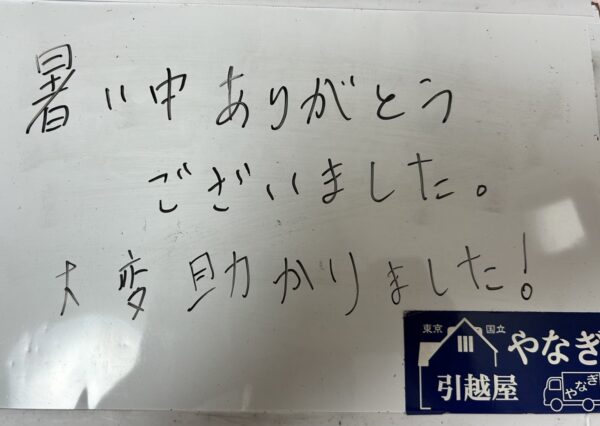 暑い中ありがとう
ございました。
大変助かりました!
東京 国立
やなぎ
引越屋
やなぎ